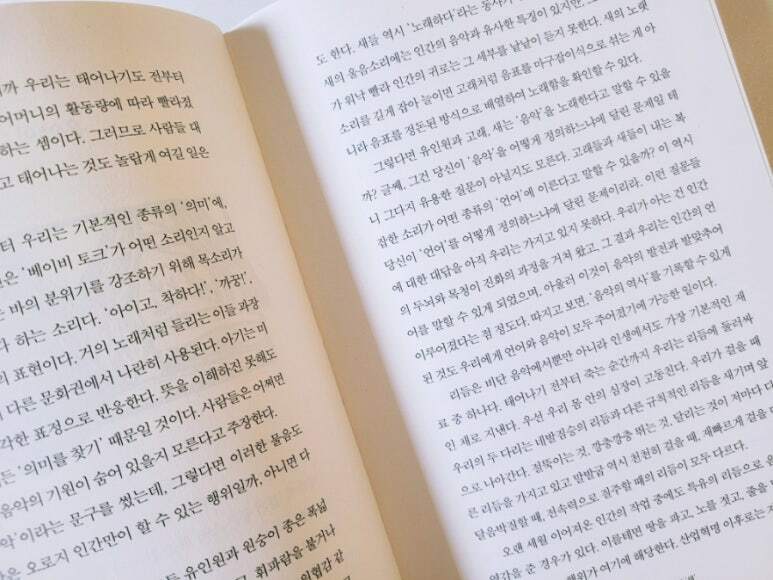 까 우리는 태어나기도 전부터
어머니의 활동량에 따라 빨라졌
하는 셈이다. 그러므로 사람들 대
고 태어나는 것도 놀랍게 여길 일은
터 우리는 기본적인 종류의 '의미'에,
은 '베이비 토크'가 어떤 소리인지 알고
는 바의 분위기를 강조하기 위해 목소리가
다 하는 소리다. '아이고, 착하다!', '까꿍!',
의 표현이다. 거의 노래처럼 들리는 이들 과장
다른 문화권에서 나란히 사용된다. 아기는 미
각한 표정으로 반응한다. 뜻을 이해하진 못해도
든 '의미를 찾기' 때문일 것이다. 사람들은 어쩌면
음악의 기원이 숨어 있을지 모른다고 주장한다.
악'이라는 문구를 썼는데, 그렇다면 이러한 물음도
은 오로지 인간만이 할 수 있는 행위일까, 아니면 다
유인원과 원숭이 좋은 폭넓
고, 휘파람을 불거나
위협감 같
도 한다. 새들 역시 '노래하다'라는 동사가
새의 울음소리에는 인간의 음악과 유사한 특징이 있지만,
가 워낙 빨라 인간의 귀로는 그 세부를 낱낱이 듣지 못한다. 새의 노랫
소리를 길게 잡아 늘이면 고래처럼 음표를 마구잡이식으로 섞는 게 아
니라 음표를 정돈된 방식으로 배열하여 노래함을 확인할 수 있다.
그렇다면 유인원과 고래, 새는 '음악'을 노래한다고 말할 수 있을
까? 글쎄, 그건 당신이 '음악'을 어떻게 정의하느냐에 달린 문제일 테
니 그다지 유용한 질문이 아닐지도 모른다. 고래들과 새들이 내는 복
잡한 소리가 어떤 종류의 '언어'에 이른다고 말할 수 있을까? 이 역시
당신이 '언어'를 어떻게 정의하느냐에 달린 문제이리라. 이런 질문들
에 대한 대답을 아직 우리는 가지고 있지 못하다. 우리가 아는 건 인간
의 두뇌와 목청이 진화의 과정을 거쳐 왔고, 그 결과 우리는 인간의 언
어를 말할 수 있게 되었으며, 아울러 이것이 음악의 발전과 발맞추어
이루어졌다는 점 정도다. 따지고 보면, '음악의 역사'를 기록할 수 있게
된 것도 우리에게 언어와 음악이 모두 주어졌기에 가능한 일이다.
리듬은 비단 음악에서뿐만 아니라 인생에서도 가장 기본적인 재
료 중 하나다. 태어나기 전부터 죽는 순간까지 우리는 리듬에 둘러싸
인 채로 지낸다. 우선 우리 몸 안의 심장이 고동친다. 우리가 걸을 때
우리의 두 다리는 네발짐승의 리듬과 다른 규칙적인 리듬을 새기며 앞
으로 나아간다. 절뚝이는 것, 깡충깡충 뛰는 것, 달리는 것이 저마다 다
른 리듬을 가지고 있고 말발굽 역시 천천히 걸을 때, 재빠르게 걸을
달음박질할 때, 전속력으로 질주할 때의 리듬이 모두 다르다.
오랜 세월 이어져온 인간의 작업 중에도 특유의 리듬으로 음
악감을 준 경우가 있다. 이를테면 땅을 파고, 노를 젓고, 줄을
행위가 여기에 해당한다. 산업혁명 이후로는